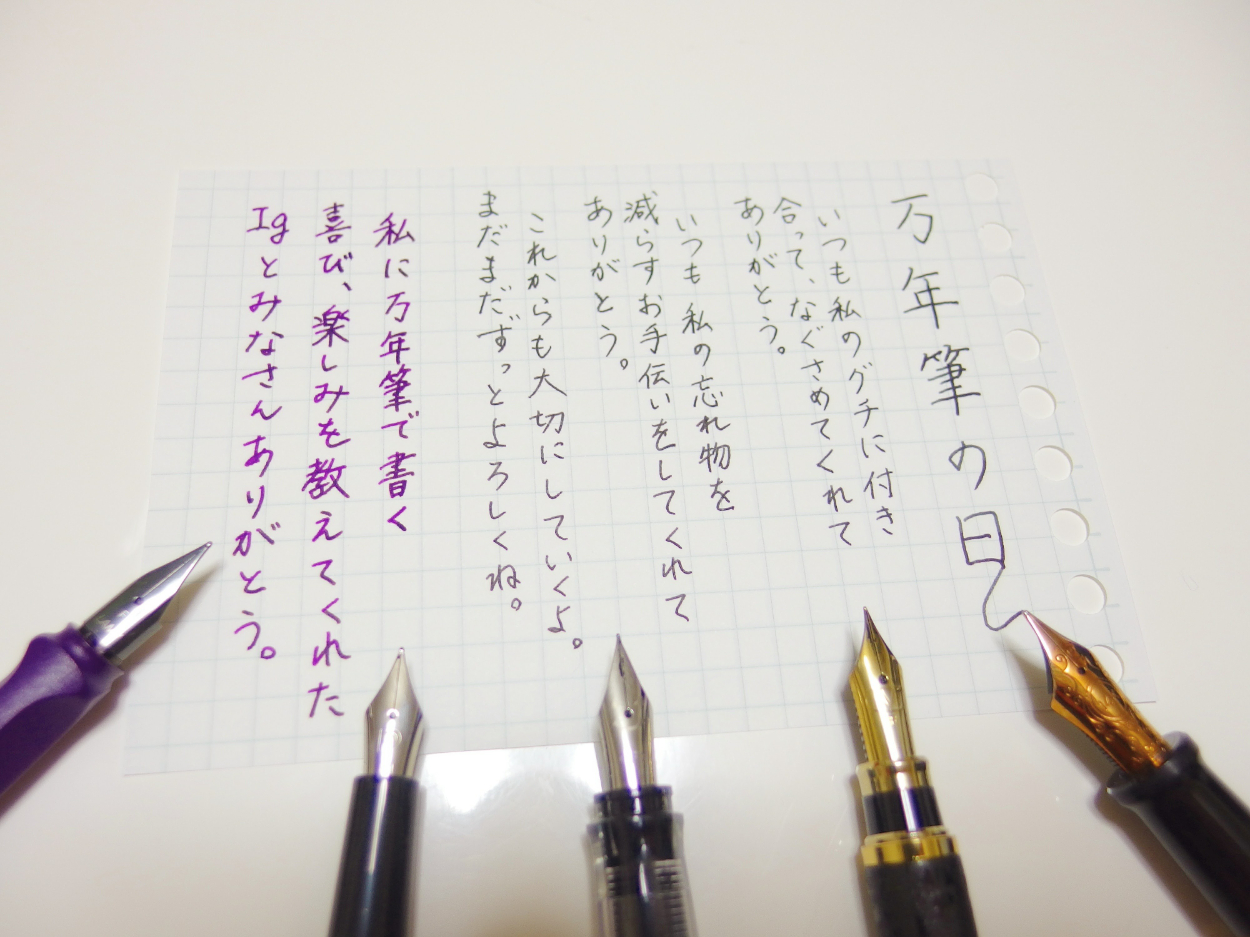 万年筆の日
いつも私のグチに付き
合って、なぐさめてくれて
ありがとう。
いつも私の忘れ物を
減らすお手伝いをしてくれて
ありがとう。
これからも大切にしていくよ。
まだまだずっとよろしくね。
私に万年筆で書く
喜び、楽しみを教えてくれた
Igとみなさんありがとう。